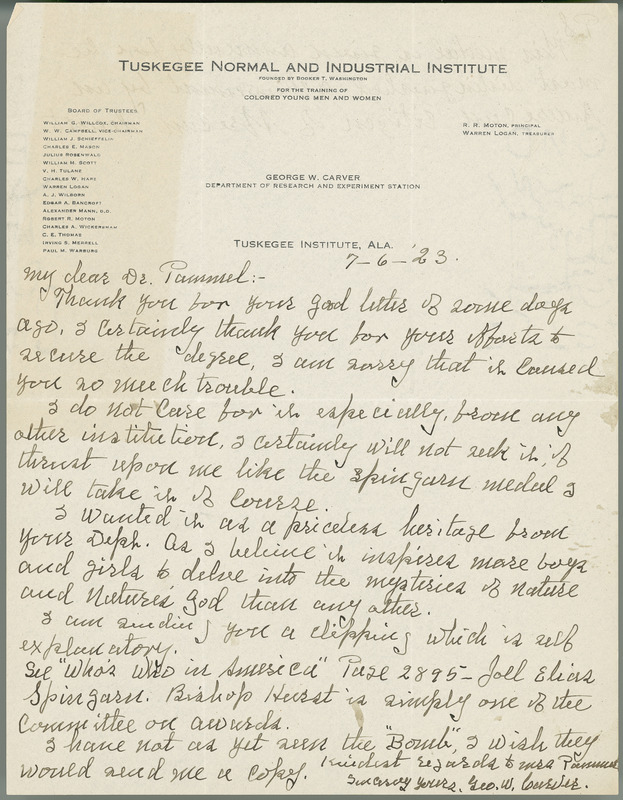 TUSKEGEE NORMAL AND INDUSTRIAL INSTITUTE
FOUNDED BY BOOKER T. WASHINGTON
FOR THE TRAINING OF
COLORED YOUNG MEN AND WOMEN
BOARD OF TRUSTEES
WILLIAM G. WILLCOX, CHAIRMAN
W. W. CAMPBELL, VICE-CHAIRMAN
WILLIAM J. SCHIEFFELIN
CHARLES E. MASON
JULIUS ROSENWALD
WILLIAM M. SCOTT
V. H. TULANE
CHARLES W. HARE
WARREN LOGAN
A. J. WILBORN
EDGAR A. BANCROFT
ALEXANDER MANN, D.D.
ROBERT R. MOTON
CHARLES A. WICKERSHAM
C. E. THOMAS
IRVING S. MERRELL
PAUL M. WARBURG
R. R. MOTON, PRINCIPAL
WARREN LOGAN, TREASURER
GEORGE W. CARVER
DEPARTMENT OF RESEARCH AND EXPERIMENT STATION
TUSKEGEE INSTITUTE, ALA.
7-6-'23.
My dear Dr. Pammel:-
Thank you for your good letter of some days
ago, I certainly thank you for your efforts to
secure the degree, I am sorry that it caused
you so much trouble.
I do not care for it especially, from any
other institution, I certainly will not seek it, if
thrust upon me like the Spingarn medal I
will take it of course.
I wanted it as a priceless heritage from
your Dept. As I believe it inspires more boys
and girls to delve into the mysteries of nature
and Natures God than any other.
I am sending you a clipping which is self
explanatory.
See "Who's Who in America" Page 2895- Joel Elias
Spingarn. Bishop Hurst is simply one of the
Committee on awards.
I have not as yet seen the "Bomb", I wish they
would send me a copy. Kindest regards to Mrs Pammel
Sincerely Yours, Geo. W. Carver.